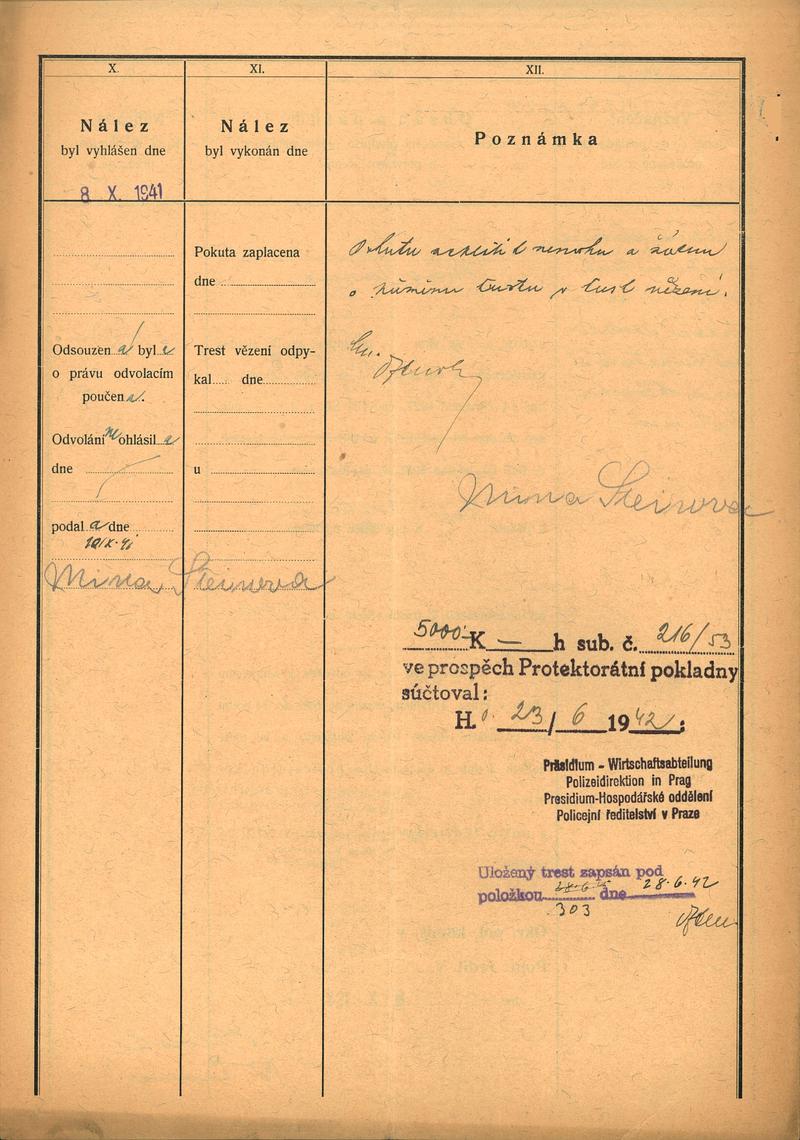 X.
XI.
XII.
Nález
byl vyhlášen dne
8 X. 1941
Nález
byl vykonán dne
Poznámka
Odsouzen a byla
o právu odvolacím
poučena.
Odvolání neohlásila
dne
podala dne
10/X-41
Mina Steinova
Pokuta zaplacena
dne
Trest vězení odpy-
kal dne
u
Pokutu a
o v
Mina Steinova
5000·- K — h sub. č. 216/53
ve prospěch Protektorátní pokladny
súčtoval:
H. 23/6 1942;
Präsidium - Wirtschaftsabteilung
Polizeidirektion in Prag
Presidium-Hospodářské oddělení
Policejní ředitelství v Praze
Uložený trest zapsán pod
položkou dne 28·6·42
303